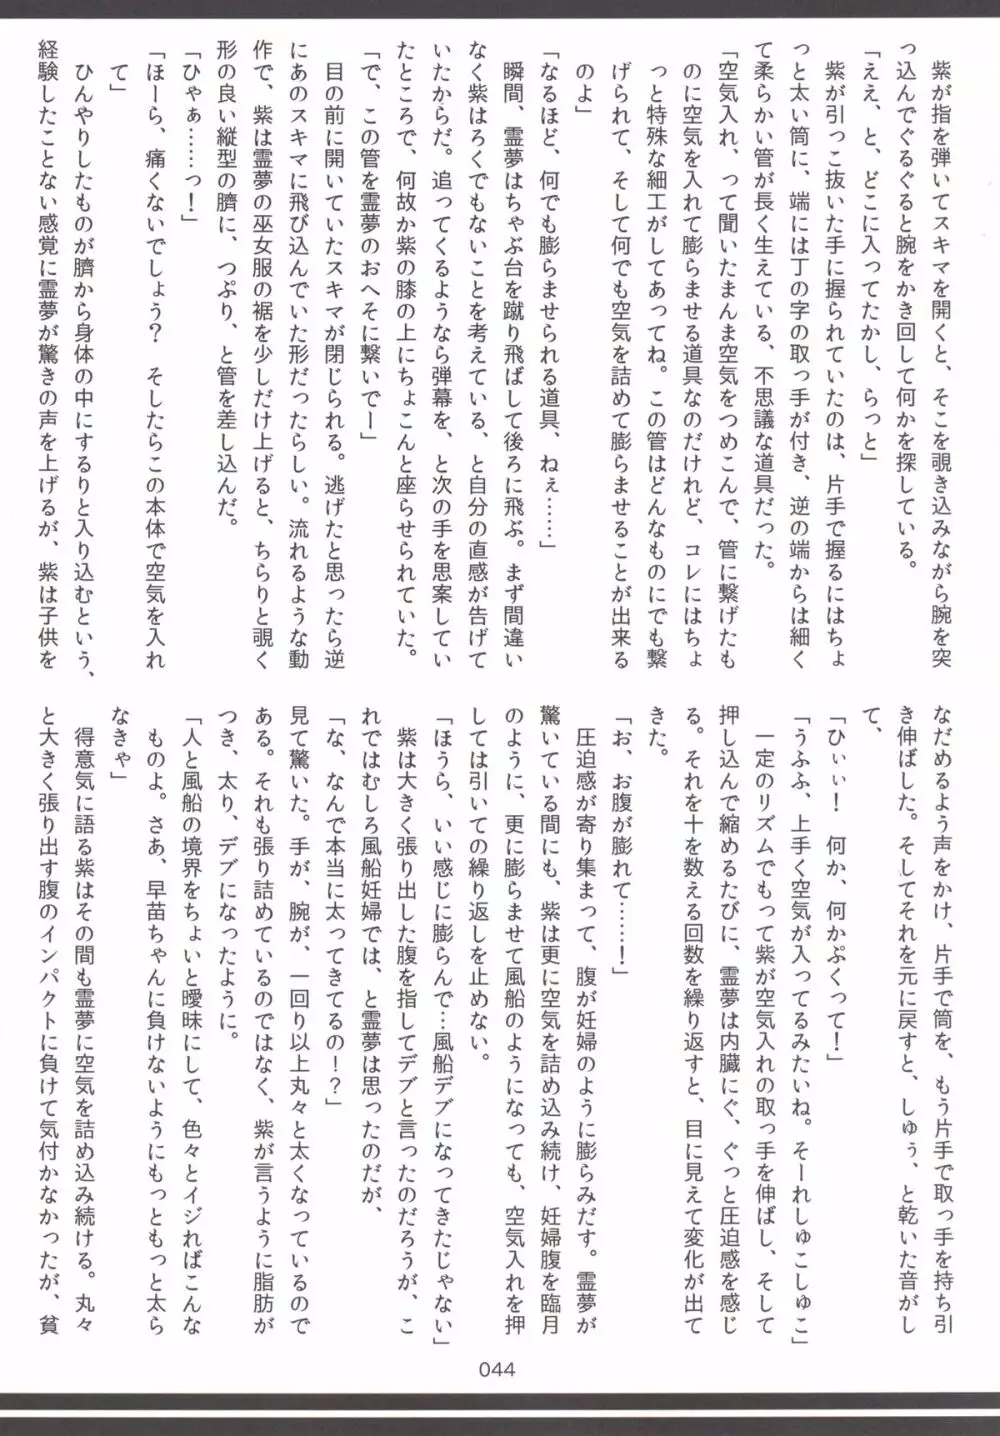 紫が指を弾いてスキマを開くと、そこを覗き込みながら腕を突
っ込んでぐるぐると腕をかき回して何かを探している。
「ええ、と、どこに入ってたかし、らっと」
　紫が引っこ抜いた手に握られていたのは、片手で握るにはちょ
っと太い筒に、端には丁の字の取っ手が付き、逆の端からは細く
て柔らかい管が長く生えている、不思議な道具だった。
「空気入れ、って聞いたまんま空気をつめこんで、管に繋げたも
のに空気を入れて膨らませる道具なのだけれど、コレにはちょ
っと特殊な細工がしてあってね。この管はどんなものにでも繋
げられて、そして何でも空気を詰めて膨らませることが出来る
のよ」
「なるほど、何でも膨らませられる道具、ねぇ……」
　瞬間、霊夢はちゃぶ台を蹴り飛ばして後ろに飛ぶ。まず間違い
なく紫はろくでもないことを考えている、と自分の直感が告げて
いたからだ。追ってくるようなら弾幕を、と次の手を思案してい
たところで、何故か紫の膝の上にちょこんと座らせられていた。
「で、この管を霊夢のおへそに繋いでー」
　目の前に開いていたスキマが閉じられる。逃げたと思ったら逆
にあのスキマに飛び込んでいた形だったらしい。流れるような動
作で、紫は霊夢の巫女服の裾を少しだけ上げると、ちらりと覗く
形の良い縦型の臍に、つぷり、と管を差し込んだ。
「ひゃぁ……っ！」
「ほーら、痛くないでしょう？　そしたらこの本体で空気を入れ
て」
　ひんやりしたものが臍から身体の中にするりと入り込むという、
経験したことない感覚に霊夢が驚きの声を上げるが、紫は子供を
なだめるよう声をかけ、片手で筒を、もう片手で取っ手を持ち引
き伸ばした。そしてそれを元に戻すと、しゅぅ、と乾いた音がし
て、
「ひぃぃ！　何か、何かぷくって！」
「うふふ、上手く空気が入ってるみたいね。そーれしゅこしゅこ」
　一定のリズムでもって紫が空気入れの取っ手を伸ばし、そして
押し込んで縮めるたびに、霊夢は内臓にぐ、ぐっと圧迫感を感じ
る。それを十を数える回数を繰り返すと、目に見えて変化が出て
きた。
「お、お腹が膨れて……！」
　圧迫感が寄り集まって、腹が妊婦のように膨らみだす。霊夢が
驚いている間にも、紫は更に空気を詰め込み続け、妊婦腹を臨月
のように、更に膨らませて風船のようになっても、空気入れを押
しては引いての繰り返しを止めない。
「ほうら、いい感じに膨らんで…風船デブになってきたじゃない」
　紫は大きく張り出した腹を指してデブと言ったのだろうが、こ
れではむしろ風船妊婦では、と霊夢は思ったのだが、
「な、なんで本当に太ってきてるの！？」
見て驚いた。手が、腕が、一回り以上丸々と太くなっているので
ある。それも張り詰めているのではなく、紫が言うように脂肪が
つき、太り、デブになったように。
「人と風船の境界をちょいと曖昧にして、色々とイジればこんな
　ものよ。さあ、早苗ちゃんに負けないようにもっともっと太ら
なきゃ」
　得意気に語る紫はその間も霊夢に空気を詰め込み続ける。丸々
と大きく張り出す腹のインパクトに負けて気付かなかったが、貧
044